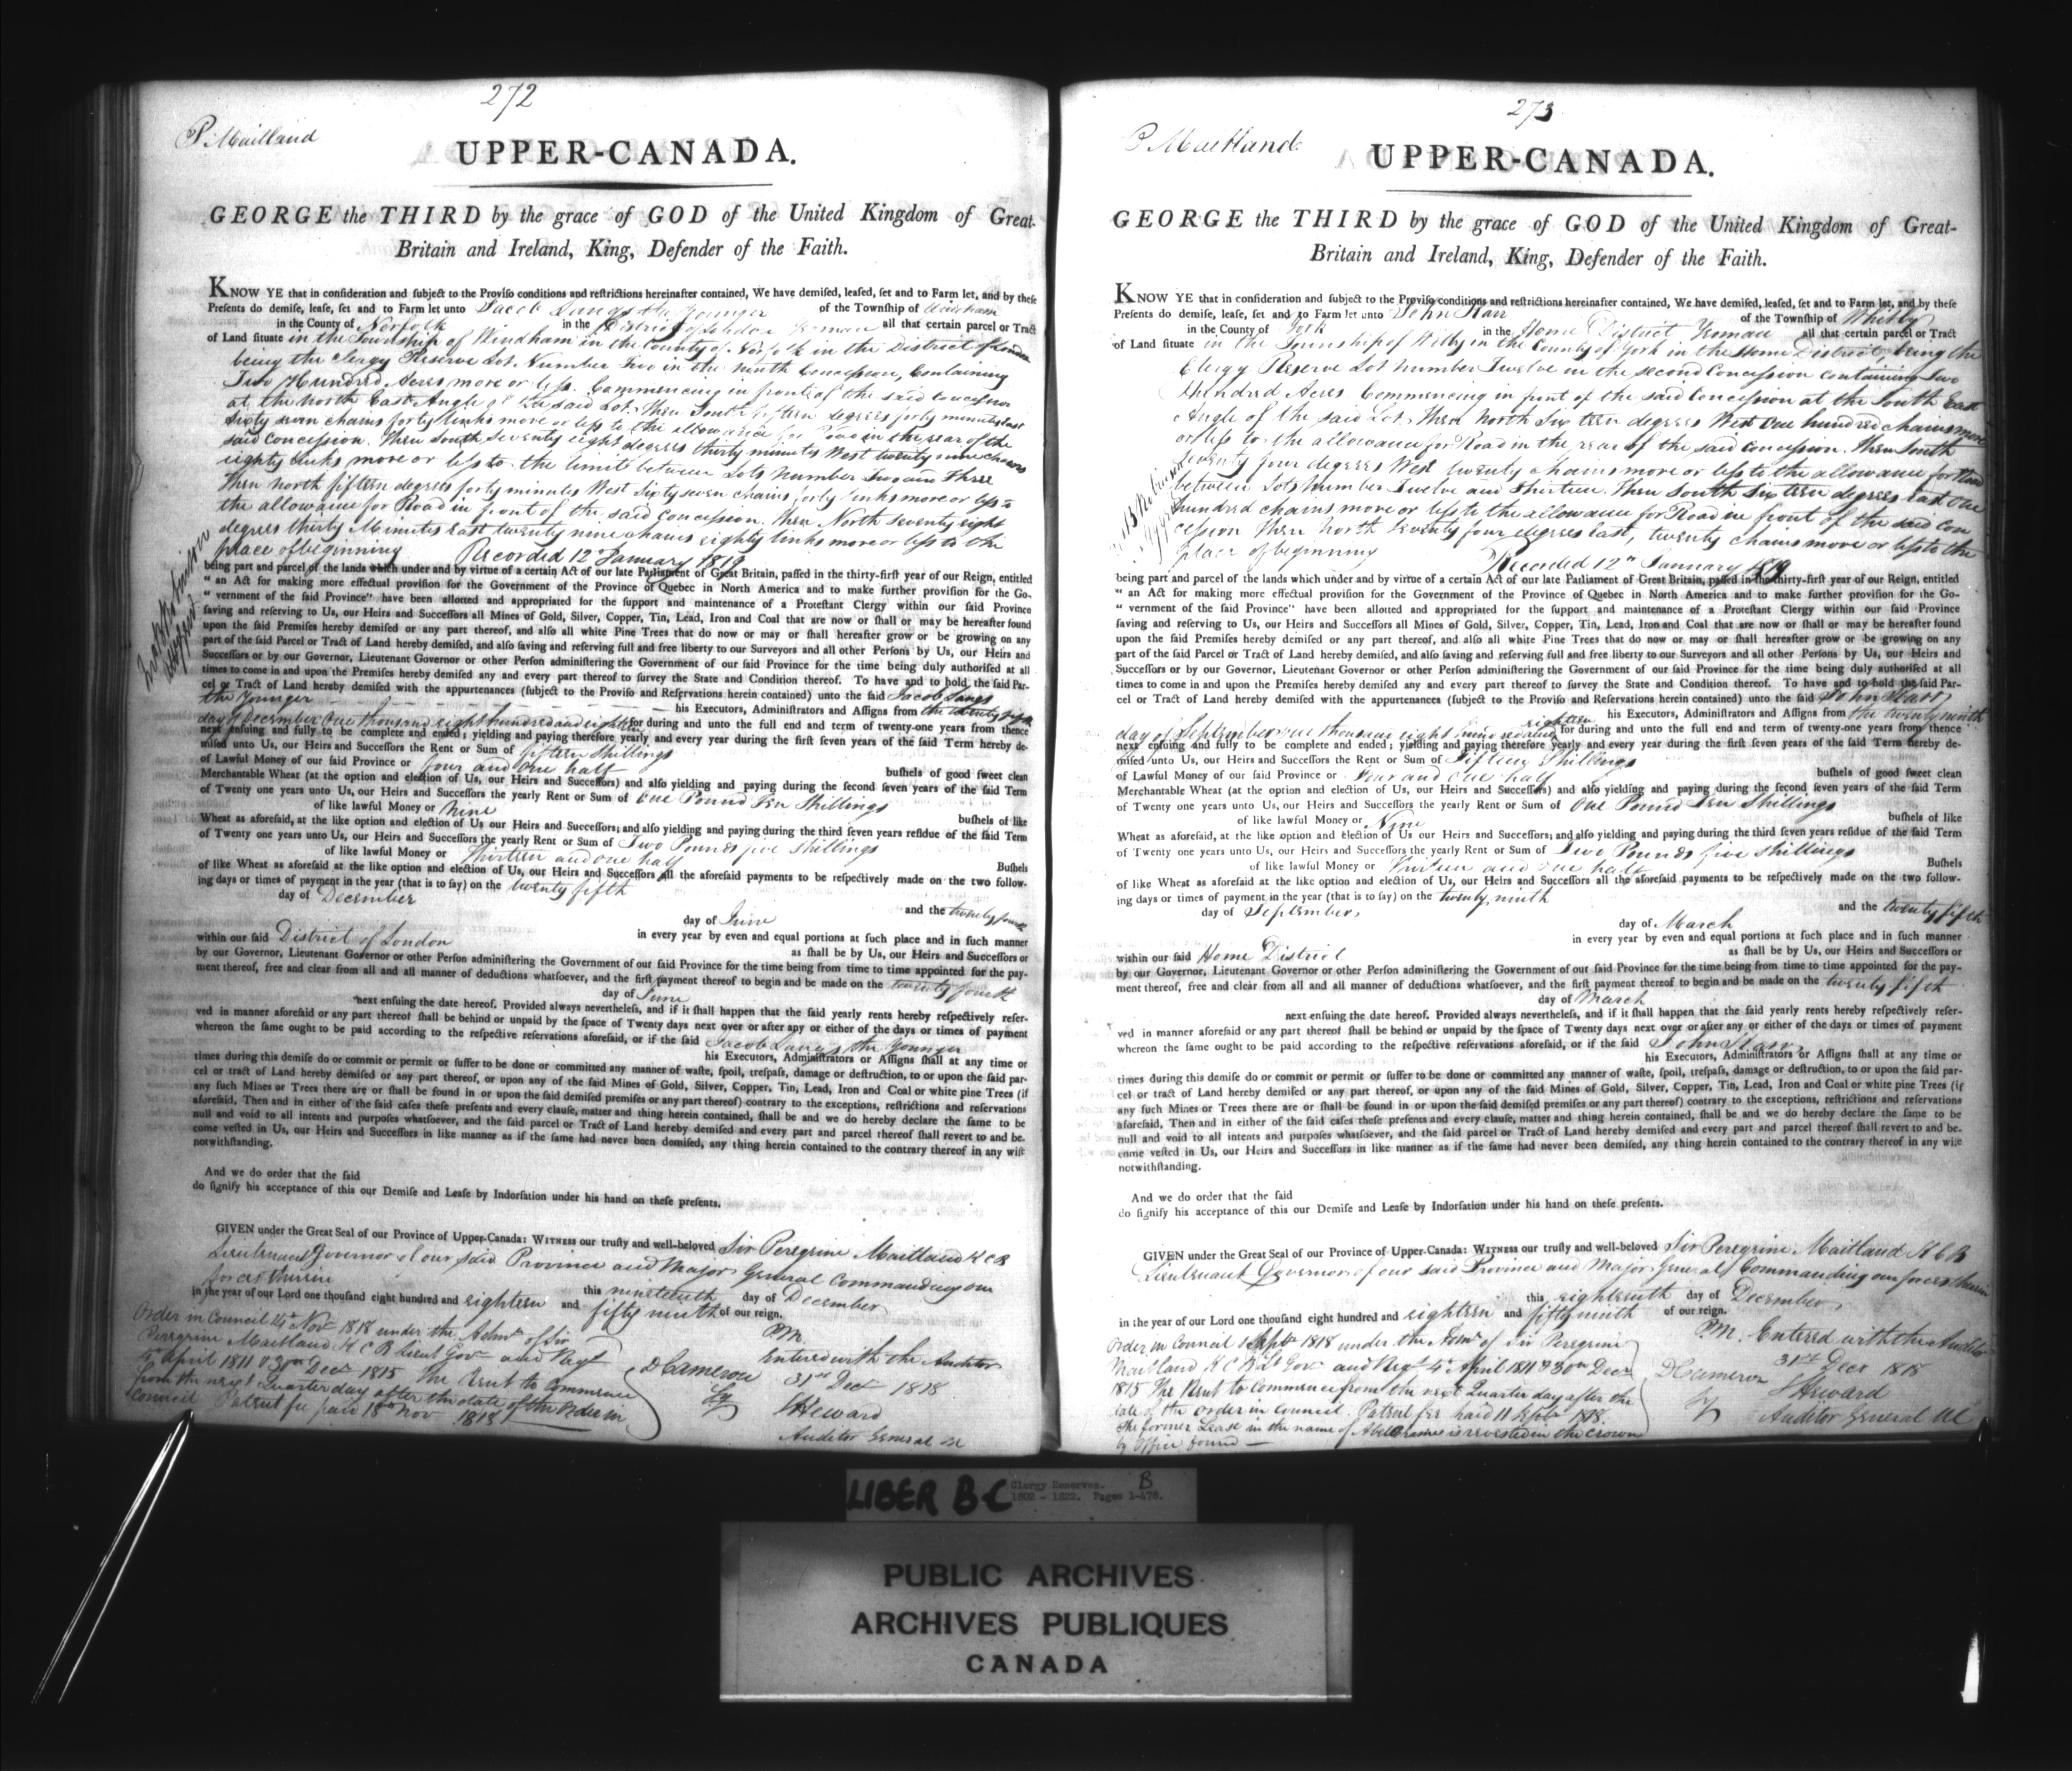 272
P. Maitland
UPPER-CANADA.
GEORGE the THIRD by the grace of GOD of the United Kingdom of Great-
Britain and Ireland, King, Defender of the Faith.
KNOW YE that in conſideration and ſubject to the Proviſo conditions and reſtrictions hereinafter contained, We have demiſed, leaſed, ſet and to Farm let, and by theſe
Preſents do demiſe, leaſe, ſet and to Farm let unto Jacob the Younger of the Townſhip of Windham
in the County of Norfolk in the District of London Yeoman all that certain parcel or Tract
of Land ſituate in the Township of Windham in the County of Norfolk in the District of London
being the Clergy Reserve Lot Number Two in the ninth Concession, Containing
Two Hundred Acres more or less. Commencing in front of the said Concession
at the North East Angle of the said Lot. Then South fifteen degrees forty minutes East
Sixty seven chains forty links more or less to the allowance for Road in the rear of the
said Concession. Then South seventy eight degrees thirty minutes West twenty nine chains
eighty links more or less to the limit between Lots Number Two and Three
Then North fifteen degrees forty minutes West Sixty seven chains forty links more or less to
the allowance for Road in front of the said Concession. Then North seventy eight
degrees thirty Minutes East twenty nine chains eighty links more or less to the
place of beginning Recorded 12th January 1819
being part and parcel of the lands which under and by virtue of a certain Act of our late Parliament of Great Britain, paſſed in the thirty-firſt year of our Reign, entitled
“ an Act for making more effectual proviſion for the Government of the Province of Quebec in North America and to make further proviſion for the Go-
“ vernment of the ſaid Province” have been allotted and appropriated for the ſupport and maintenance of a Proteſtant Clergy within our ſaid Province
ſaving and reſerving to Us, our Heirs and Succeſſors all Mines of Gold, Silver, Copper, Tin, Lead, Iron and Coal that are now or ſhall or may be hereafter found
upon the ſaid Premiſes hereby demiſed or any part thereof, and alſo all white Pine Trees that do now or may or ſhall hereafter grow or be growing on any
part of the ſaid Parcel or Tract of Land hereby demiſed, and alſo ſaving and reſerving full and free liberty to our Surveyors and all other Perſons by Us, our Heirs and
Succeſſors or by our Governor, Lieutenant Governor or other Perſon adminiſtering the Government of our ſaid Province for the time being duly authoriſed at all
times to come in and upon the Premiſes hereby demiſed any and every part thereof to ſurvey the State and Condition thereof. To have and to hold, the ſaid Par-
cel or Tract of Land hereby demiſed with the appurtenances (ſubject to the Proviſo and Reſervations herein contained) unto the ſaid Jacob
the Younger his Executors, Adminiſtrators and Aſſigns from the twenty fifth
day of December One thousand eight hundred and eighteen for during and unto the full end and term of twenty-one years from thence
next enſuing and fully to be complete and ended; yielding and paying therefore yearly and every year during the firſt ſeven years of the ſaid Term hereby de-
miſed unto Us, our Heirs and Succeſſors the Rent or Sum of fifteen Shillings
of Lawful Money of our ſaid Province or four and one half buſhels of good ſweet clean
Merchantable Wheat (at the option and election of Us, our Heirs and Succeſſors) and alſo yielding and paying during the ſecond ſeven years of the ſaid Term
of Twenty one years unto Us, our Heirs and Succeſſors the yearly Rent or Sum of One Pound Ten Shillings
of like lawful Money or Nine buſhels of like
Wheat as aforeſaid, at the like option and election of Us our Heirs and Succeſſors; and alſo yielding and paying during the third ſeven years reſidue of the ſaid Term
of Twenty one years unto Us, our Heirs and Succeſſors the yearly Rent or Sum of Two Pounds five Shillings
of like lawful Money or Thirteen and one half Buſhels
of like Wheat as aforeſaid at the like option and election of Us, our Heirs and Succeſſors all the aforeſaid payments to be reſpectively made on the two follow-
ing days or times of payment in the year (that is to ſay) on the twenty fifth
day of December and the twenty fourth
day of June
in every year by even and equal portions at ſuch place and in ſuch manner
within our ſaid District of London as ſhall be by Us, our Heirs and Succeſſors or
by our Governor, Lieutenant Governor or other Perſon adminiſtering the Government of our ſaid Province for the time being from time to time appointed for the pay-
ment thereof, free and clear from all and all manner of deductions whatſoever, and the firſt payment thereof to begin and be made on the twenty fourth
day of June
next enſuing the date hereof. Provided always nevertheleſs, and if it ſhall happen that the ſaid yearly rents hereby reſpectively reſer-
ved in manner aforeſaid or any part thereof ſhall be behind or unpaid by the ſpace of Twenty days next over or after any or either of the days or times of payment
whereon the ſame ought to be paid according to the reſpective reſervations aforeſaid, or if the ſaid Jacob the Younger
his Executors, Adminiſtrators or Aſſigns ſhall at any time or
times during this demiſe do or commit or permit or ſuffer to be done or committed any manner of waſte, ſpoil, treſpaſs, damage or deſtruction, to or upon the ſaid par-
cel or tract of Land hereby demiſed or any part thereof, or upon any of the ſaid Mines of Gold, Silver, Copper, Tin, Lead, Iron and Coal or white pine Trees (if
any ſuch Mines or Trees there are or ſhall be found in or upon the ſaid demiſed premiſes or any part thereof) contrary to the exceptions, reſtrictions and reſervations
aforeſaid, Then and in either of the ſaid caſes theſe preſents and every clauſe, matter and thing herein contained, ſhall be and we do hereby declare the ſame to be
null and void to all intents and purpoſes whatſoever, and the ſaid parcel or Tract of Land hereby demiſed and every part and parcel thereof ſhall revert to and be-
come veſted in Us, our Heirs and Succeſſors in like manner as if the ſame had never been demiſed, any thing herein contained to the contrary thereof in any wiſe
notwithſtanding.
And we do order that the ſaid
do ſignify his acceptance of this our Demiſe and Leaſe by Indorſation under his hand on theſe preſents.
GIVEN under the Great Seal of our Province of Upper-Canada: WITNESS our truſty and well-beloved Sir Peregrine Maitland K C B
Lieutenant Governor of our said Province and Major General Commanding our
forces therein
this nineteenth day of December
in the year of our Lord one thouſand eight hundred and eighteen and fifty ninth of our reign.
Order in Council 14th Novr 1818 under the Admn of Sir
Peregrine Maitland K C B Lieut Govr and Regt
4 April 1811 & 30th Decr 1815 The Rent to Commence
from the next Quarter day after the date of the Order in
Council Patent fee paid 18th Nov 1818
D Cameron
P.M.
Entered with the Auditor
31st Decr 1818
S Heward
Auditor General
273
P Maitland
UPPER-CANADA.
GEORGE the THIRD by the grace of GOD of the United Kingdom of Great-
Britain and Ireland, King, Defender of the Faith.
KNOW YE that in conſideration and ſubject to the Proviſo conditions and reſtrictions hereinafter contained, We have demiſed, leaſed, ſet and to Farm let, and by theſe
Preſents do demiſe, leaſe, ſet and to Farm let unto John of the Townſhip of Whitby
in the County of York in the Home District Yeoman all that certain parcel or Tract
of Land ſituate in the Township of Whitby in the County of York in the Home District, being the
Clergy Reserve Lot number Twelve in the second Concession containing Two
Hundred Acres Commencing in front of the said Concession at the South East
Angle of the said Lot. Then North Sixteen degrees West One hundred chains more
or less to the allowance for Road in the rear of the said Concession. Then South
Seventy four degrees West twenty chains more or less to the allowance for Road
between Lots number Twelve and Thirteen. Then South Sixteen degrees East One
hundred chains more or less to the allowance for Road in front of the said Con
cession Then North Seventy four degrees East, twenty chains more or less to the
place of beginning Recorded 12th January 1819
being part and parcel of the lands which under and by virtue of a certain Act of our late Parliament of Great Britain, paſſed in the thirty-firſt year of our Reign, entitled
“ an Act for making more effectual proviſion for the Government of the Province of Quebec in North America and to make further proviſion for the Go-
“ vernment of the ſaid Province” have been allotted and appropriated for the ſupport and maintenance of a Proteſtant Clergy within our ſaid Province
ſaving and reſerving to Us, our Heirs and Succeſſors all Mines of Gold, Silver, Copper, Tin, Lead, Iron and Coal that are now or ſhall or may be hereafter found
upon the ſaid Premiſes hereby demiſed or any part thereof, and alſo all white Pine Trees that do now or may or ſhall hereafter grow or be growing on any
part of the ſaid Parcel or Tract of Land hereby demiſed, and alſo ſaving and reſerving full and free liberty to our Surveyors and all other Perſons by Us, our Heirs and
Succeſſors or by our Governor, Lieutenant Governor or other Perſon adminiſtering the Government of our ſaid Province for the time being duly authoriſed at all
times to come in and upon the Premiſes hereby demiſed any and every part thereof to ſurvey the State and Condition thereof. To have and to hold the ſaid Par-
cel or Tract of Land hereby demiſed with the appurtenances (ſubject to the Proviſo and Reſervations herein contained) unto the ſaid John
his Executors, Adminiſtrators and Aſſigns from the twenty ninth
day of September one thousand eight hundred and eighteen for during and unto the full end and term of twenty-one years from thence
next enſuing and fully to be complete and ended; yielding and paying therefore yearly and every year during the firſt ſeven years of the ſaid Term hereby de-
miſed unto Us, our Heirs and Succeſſors the Rent or Sum of Fifteen Shillings
of Lawful Money of our ſaid Province or Four and One half buſhels of good ſweet clean
Merchantable Wheat (at the option and election of Us, our Heirs and Succeſſors) and alſo yielding and paying during the ſecond ſeven years of the ſaid Term
of Twenty one years unto Us, our Heirs and Succeſſors the yearly Rent or Sum of One Pound Ten Shillings
of like lawful Money or Nine buſhels of like
Wheat as aforeſaid, at the like option and election of Us our Heirs and Succeſſors; and alſo yielding and paying during the third ſeven years reſidue of the ſaid Term
of Twenty one years unto Us, our Heirs and Succeſſors the yearly Rent or Sum of Two Pounds five Shillings
of like lawful Money or Thirteen and one half Buſhels
of like Wheat as aforeſaid at the like option and election of Us, our Heirs and Succeſſors all the aforeſaid payments to be reſpectively made on the two follow-
ing days or times of payment in the year (that is to ſay) on the twenty ninth
day of September, and the twenty fifth
day of March
in every year by even and equal portions at ſuch place and in ſuch manner
within our ſaid Home District as ſhall be by Us, our Heirs and Succeſſors or
by our Governor, Lieutenant Governor or other Perſon adminiſtering the Government of our ſaid Province for the time being from time to time appointed for the pay-
ment thereof, free and clear from all and all manner of deductions whatſoever, and the firſt payment thereof to begin and be made on the twenty fifth
day of March
next enſuing the date hereof. Provided always nevertheleſs, and if it ſhall happen that the ſaid yearly rents hereby reſpectively reſer-
ved in manner aforeſaid or any part thereof ſhall be behind or unpaid by the ſpace of Twenty days next over or after any or either of the days or times of payment
whereon the ſame ought to be paid according to the reſpective reſervations aforeſaid, or if the ſaid John
his Executors, Adminiſtrators or Aſſigns ſhall at any time or
times during this demiſe do or commit or permit or ſuffer to be done or committed any manner of waſte, ſpoil, treſpaſs, damage or deſtruction, to or upon the ſaid par-
cel or tract of Land hereby demiſed or any part thereof, or upon any of the ſaid Mines of Gold, Silver, Copper, Tin, Lead, Iron and Coal or white pine Trees (if
any ſuch Mines or Trees there are or ſhall be found in or upon the ſaid demiſed premiſes or any part thereof) contrary to the exceptions, reſtrictions and reſervations
aforeſaid, Then and in either of the ſaid caſes theſe preſents and every clauſe, matter and thing herein contained, ſhall be and we do hereby declare the ſame to be
null and void to all intents and purpoſes whatſoever, and the ſaid parcel or Tract of Land hereby demiſed and every part and parcel thereof ſhall revert to and be-
come veſted in Us, our Heirs and Succeſſors in like manner as if the ſame had never been demiſed, any thing herein contained to the contrary thereof in any wiſe
notwithſtanding.
And we do order that the ſaid
do ſignify his acceptance of this our Demiſe and Leaſe by Indorſation under his hand on theſe preſents.
GIVEN under the Great Seal of our Province of Upper-Canada: WITNESS our truſty and well-beloved Sir Peregrine Maitland K C B
Lieutenant Governor of our said Province and Major General Commanding our forces therein
this eighteenth day of December,
in the year of our Lord one thouſand eight hundred and eighteen and fifty ninth of our reign.
Order in Council 1 Septr 1818 under the Admn of Sir Peregrine
Maitland K C B Lt Govr and Regt 4th April 1811 & 30th Decr
1815 The Rent to Commence from the next Quarter day after the
date of the Order in Council. Patent fee paid 11 Septr 1818.
The former Lease in the name of Abel is revested in the Crown
by Office found
D Cameron
P.M. Entered with the Auditor
31st Decr 1818
S Heward
Auditor General UC
LIBER B-C
Clergy Reserves. B
1802 - 1822. Pages 1-478.
PUBLIC ARCHIVES
ARCHIVES PUBLIQUES
CANADA